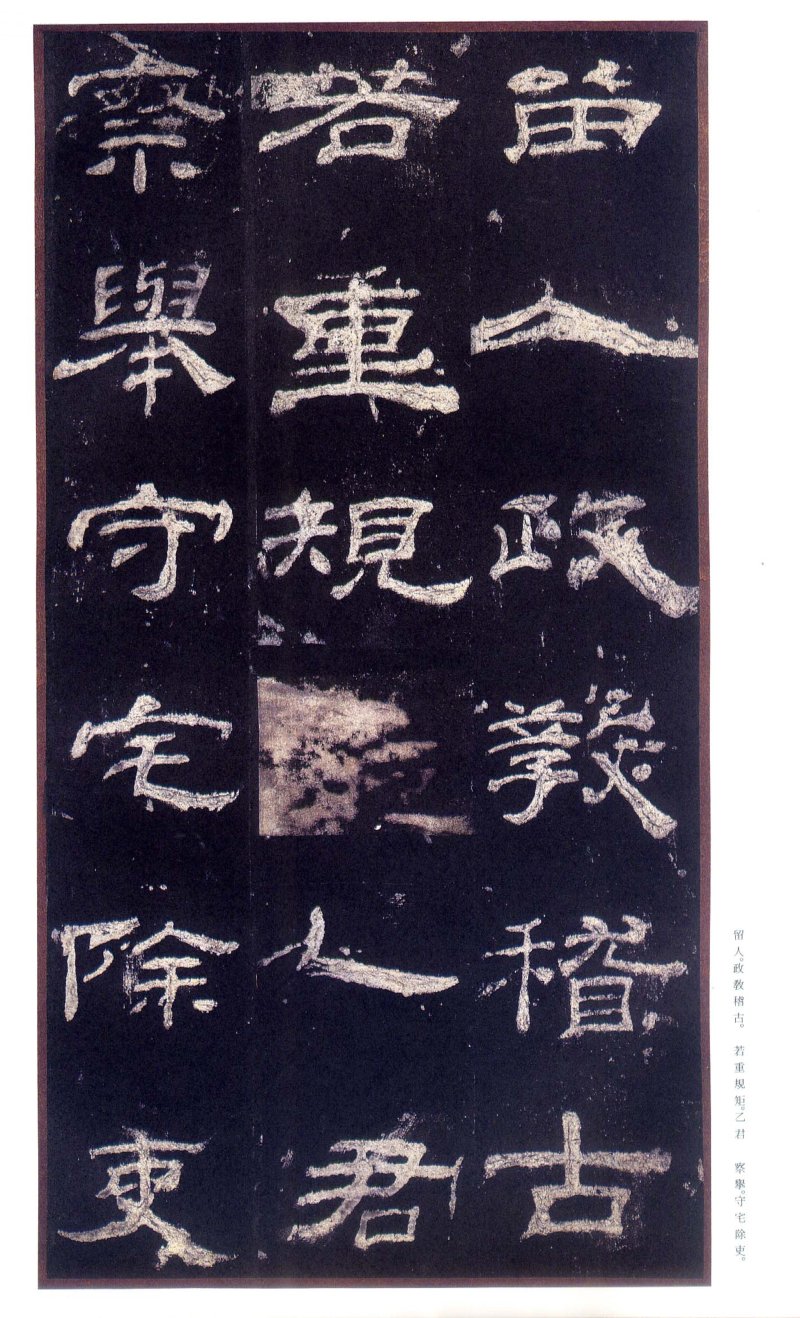 留人政教稽古
若重規乙君
察舉守宅除吏
留人。政教稽古。　若重規矩。乙君　察舉。守宅除吏。